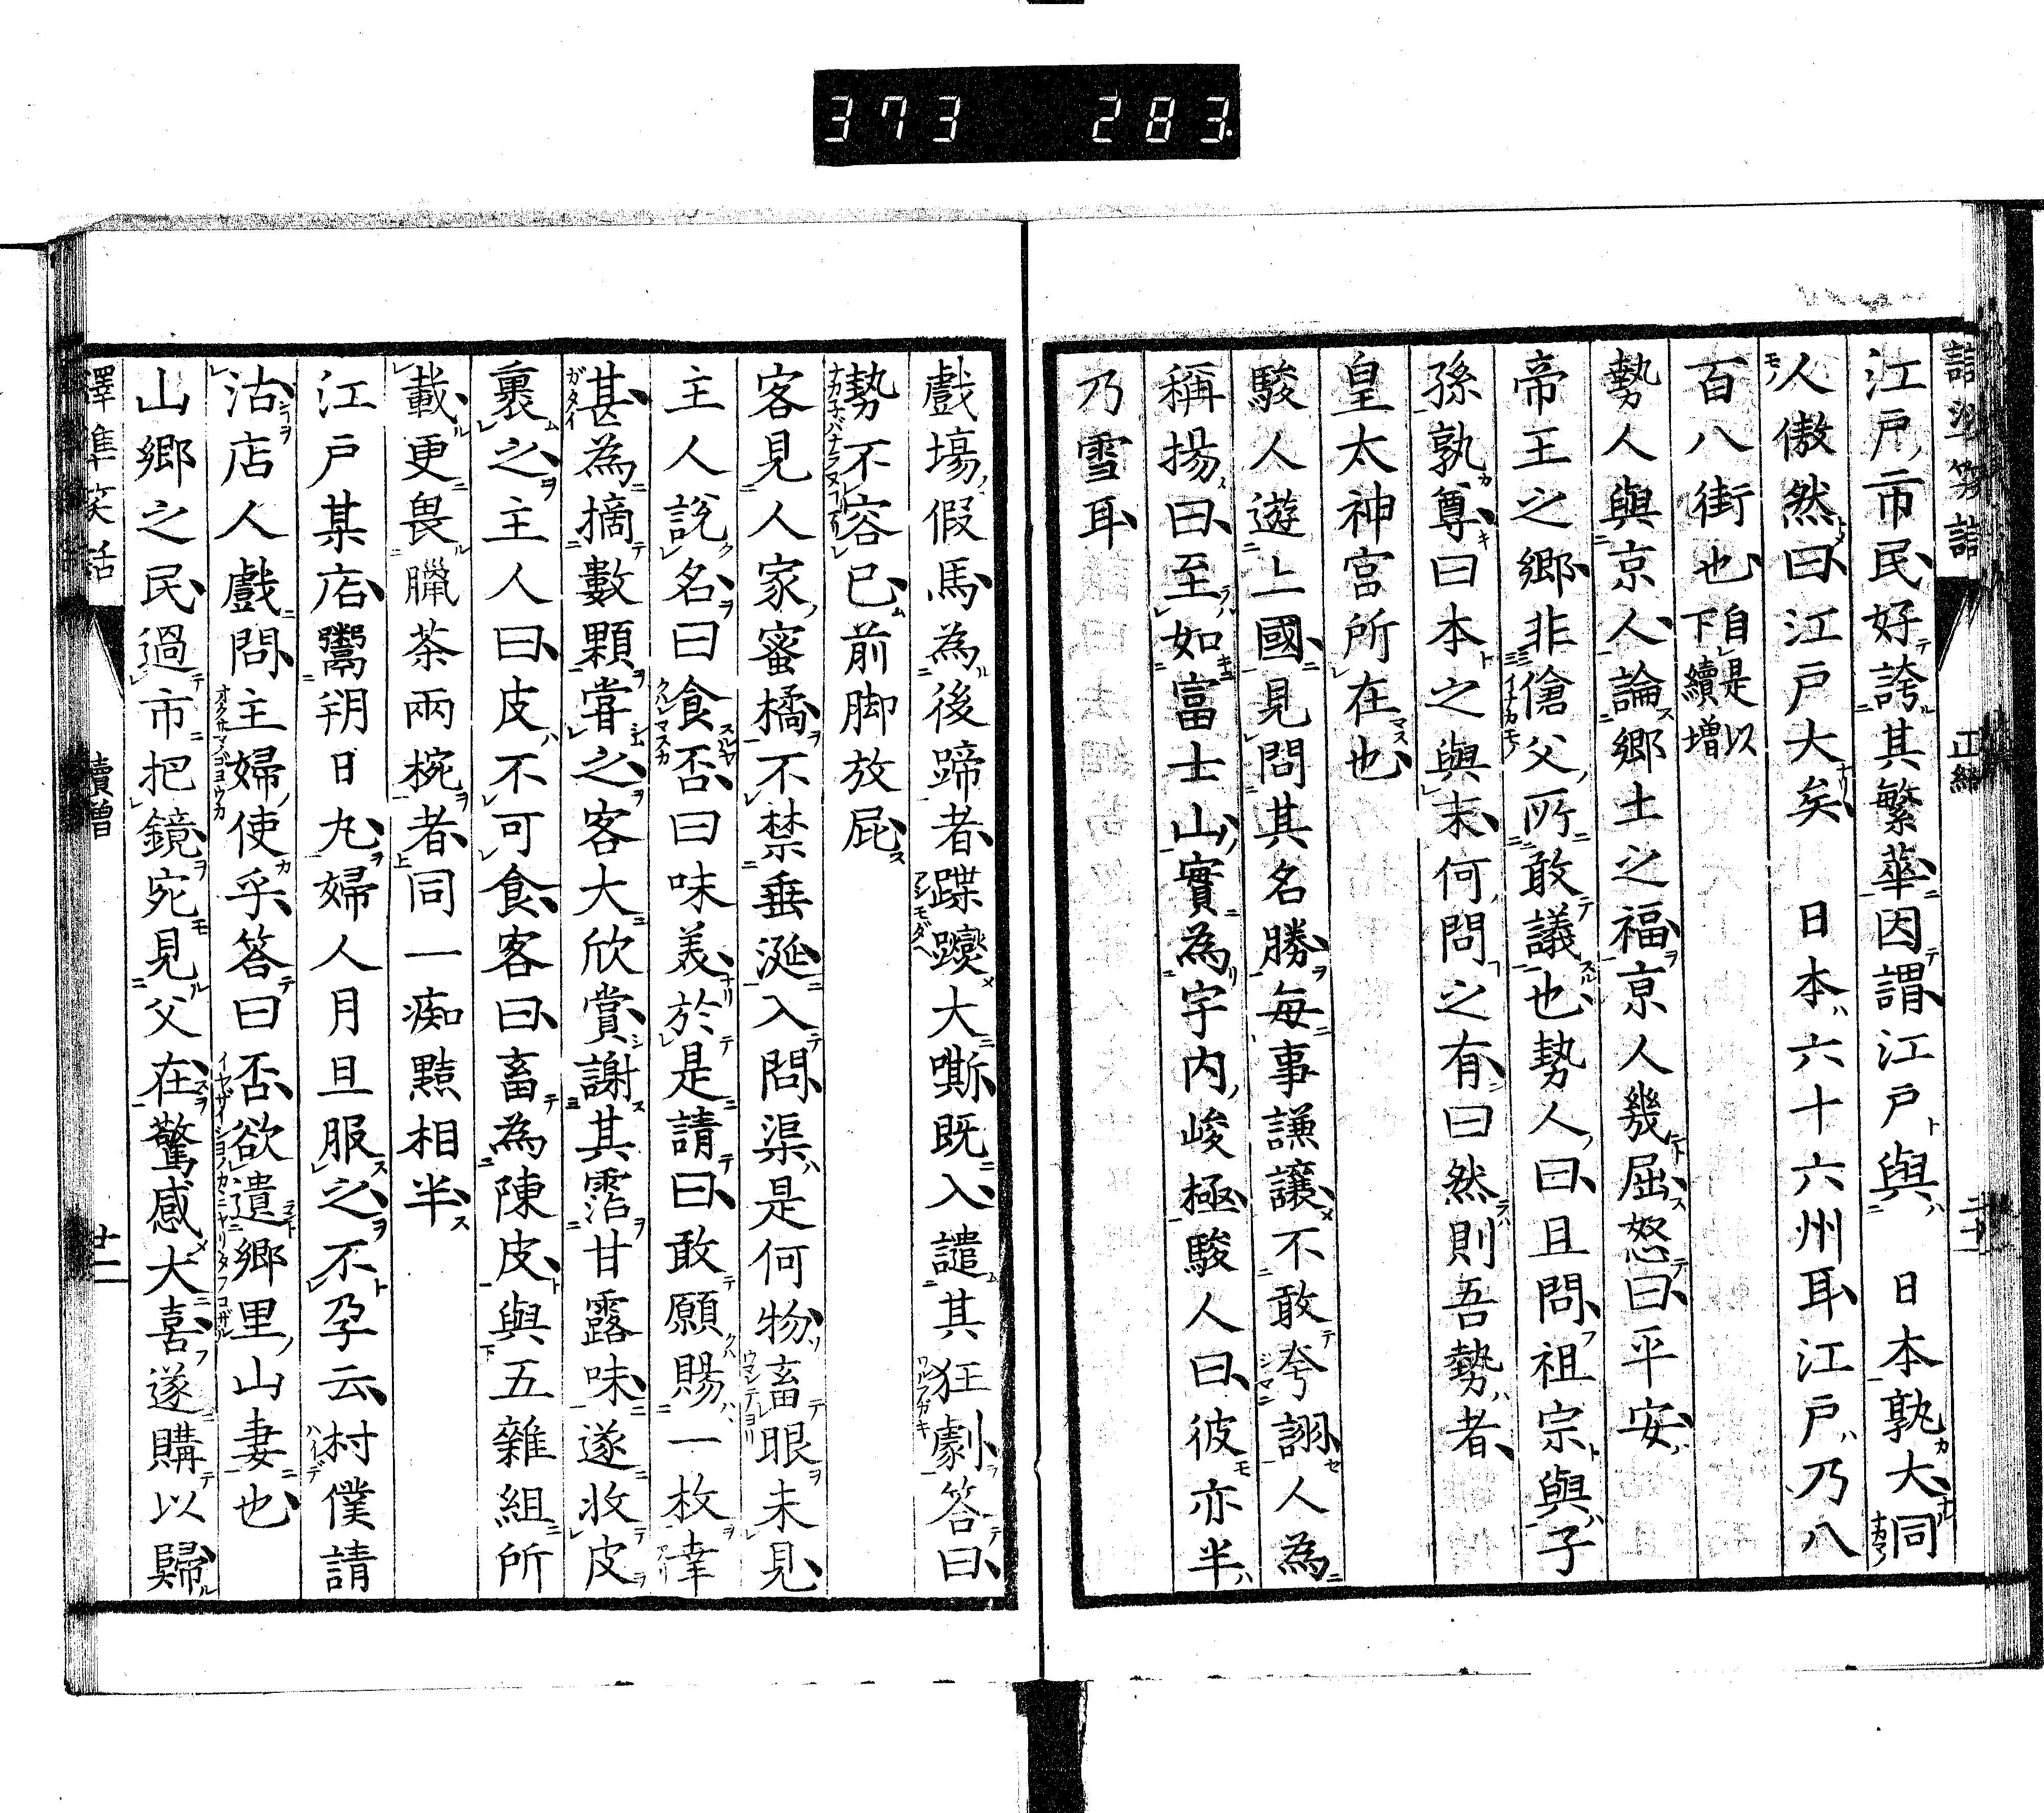 373 283
江戸市民好誇其繁華因謂江戸與 日本孰大同
人傲然曰江戸大矣 日本六十六州耳江戸乃八
百八街也自是以下續増
勢人與京人論郷土之福京人幾屈怒曰平安
帝王之郷非傖父所敢議也勢人曰且問祖宗與子
孫孰尊曰本之與末何問之有曰然則吾勢者
皇太神宮所在也
駿人遊上國見問其名勝毎事謙讓不敢夸詡人為
稱揚曰至如富士山實為宇内峻極駿人曰彼亦半
乃雪耳
戲塲假馬為後蹄者蹀躞大嘶既入譴其狂劇答曰
勢不容已前脚放屁
客見人家蜜橘不禁垂涎入問渠是何物畜眼未見
主人説名曰食否曰味美於是請曰敢願賜一枚幸
甚為摘數顆嘗之客大欣賞謝其霑甘露味遂收皮
裹之主人曰皮不可食客曰畜為陳皮與五雜組所
載更畏臘茶兩椀者同一痴黠相半
江戸某店鬻朔日丸婦人月旦服之不孕云村僕請
沽店人戲問主婦使乎答曰否欲遺郷里山妻也
山郷之民過市把鏡宛見父在驚感大喜遂購以歸
譯準笑話
續增
廿二